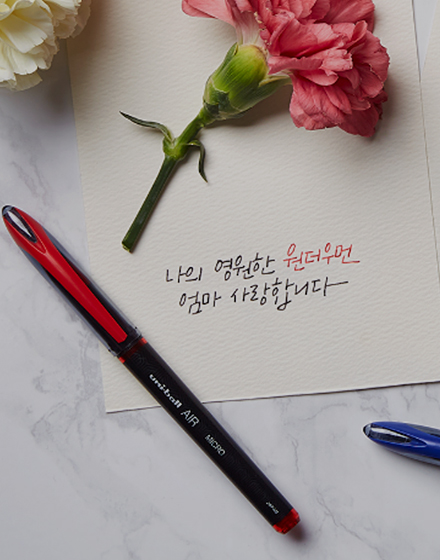 나의 영원한 원더우먼
엄마 사랑합니다
uni-ball AIR MICRO